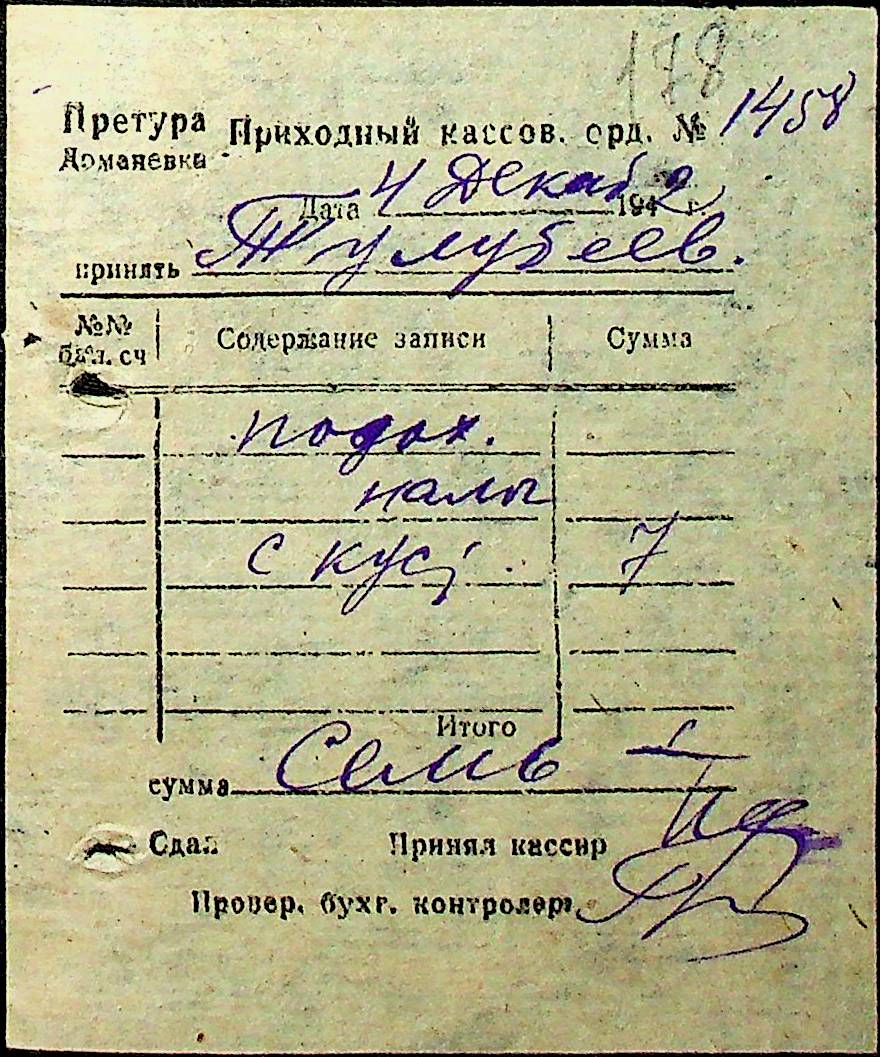 178
Претура Приходный кассов. орд. № 1458
Доманевка
Дата 4 Декаб 1942 г.
принять Тулубеев.
№№ бал. сч Содержание записи Сумма
подох.
налог
с кус. 7
Итого
сумма Семь
Сдал Принял кассир
Провер. бухг. контролер